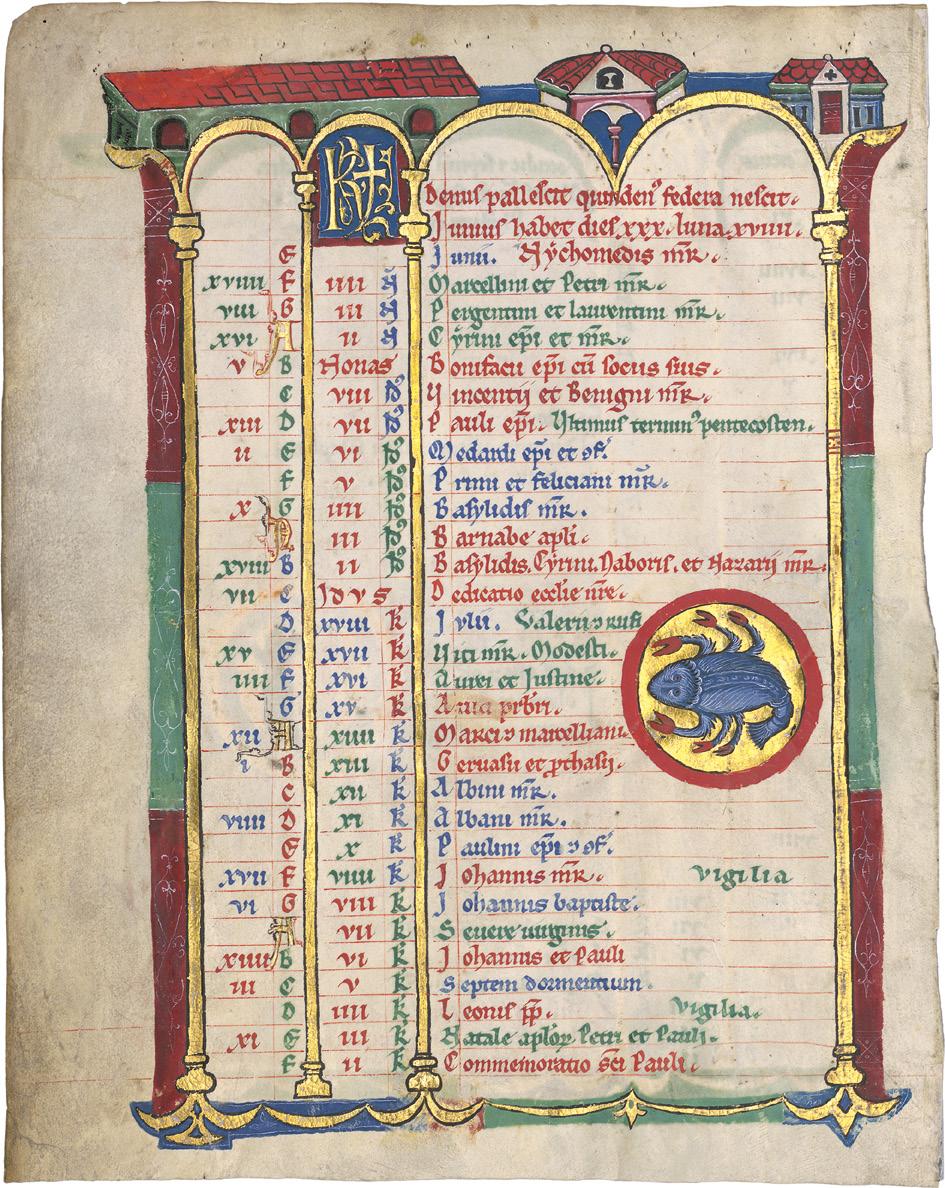 KL Denus pallescit quindenꝰ federa nescit.
Junius habet dies xxx. luna xviiii.
E Junii. Nychomedis mr̄.
xviiii F iiii N Marcellini et Petri mr̄.
viii G iii N Pergentini et laurentini mr̄.
xvi A ii N Cyrini epi et mr̄.
v B Nonas Bonifacii epi cū sociis suis.
C viii id Vincentij et Benigni mr̄.
xiii D vii id Pauli epi. Vltimus terminꝰ pentecosten.
ii E vi id Medardi epi et 9f.
F v id Primi et feliciani mr̄.
x G iiii id Basylidis mr̄.
A iii id Barnabe apli.
xviii B ii id Basylidis, Cyrini, Naboris, et Nazarij mr̄.
vii C Idvs Dedicatio ecclie nre.
D xviii k Jvlii. Valerii ⁊ rufi
xv E xvii k Viti mr̄. Modesti.
iiii F xvi k Aurei et Justine.
G xv k Aviti prbri.
xii A xiiii k Marci ⁊ marcelliani
i B xiii k Geruasii et prthasij.
C xii k Albini mr̄.
viiii D xi k Albani mr̄.
E x k Paulini epi ⁊ 9f.
xvii F viiii k Johannis mr̄. vigilia
vi G viii k Johannis baptiste.
A vii k Seuere uirginis.
xiiii B vi k Johannis et Pauli
iii C v k Septem dormentium.
D iiii k Leonis pp. vigilia.
xi E iii k Natale aploꝝ Petri et Pauli.
F ii k Commemoratio sci Pauli.